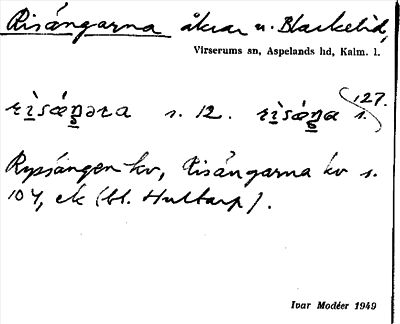 Risängarna åkrar u. Blackelid,
Virserums sn, Aspelands hd, Kalm. l.
s. 12. s. 127.
Rysängen kv, Risängarna kv s.
104, ek (bl. Hultarp).
Ivar Modéer 1949